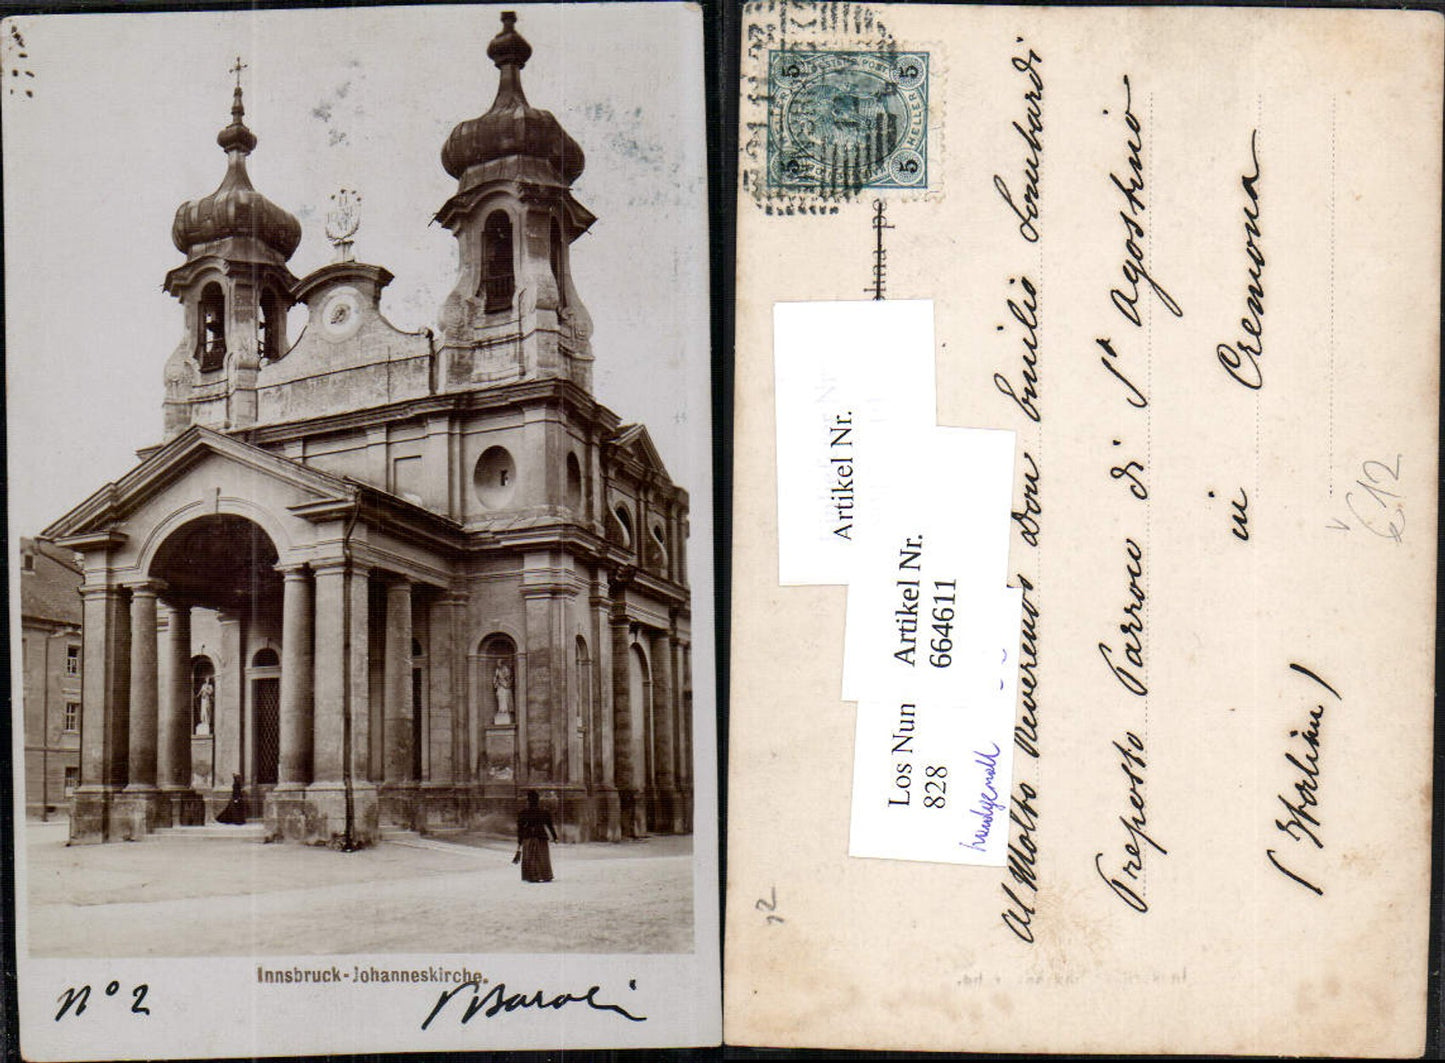 Innsbruck-Johanneskirche.
Nº 2
5 5
5 5
HELLER
Al Molto Reverendo Don Emilio Lombardi
Preposto Parroco di St Agostino
in Cremona
(Italien)
Artikel Nr.
Artikel Nr.
664611
Los Nun
828
handgemalt
€12
12